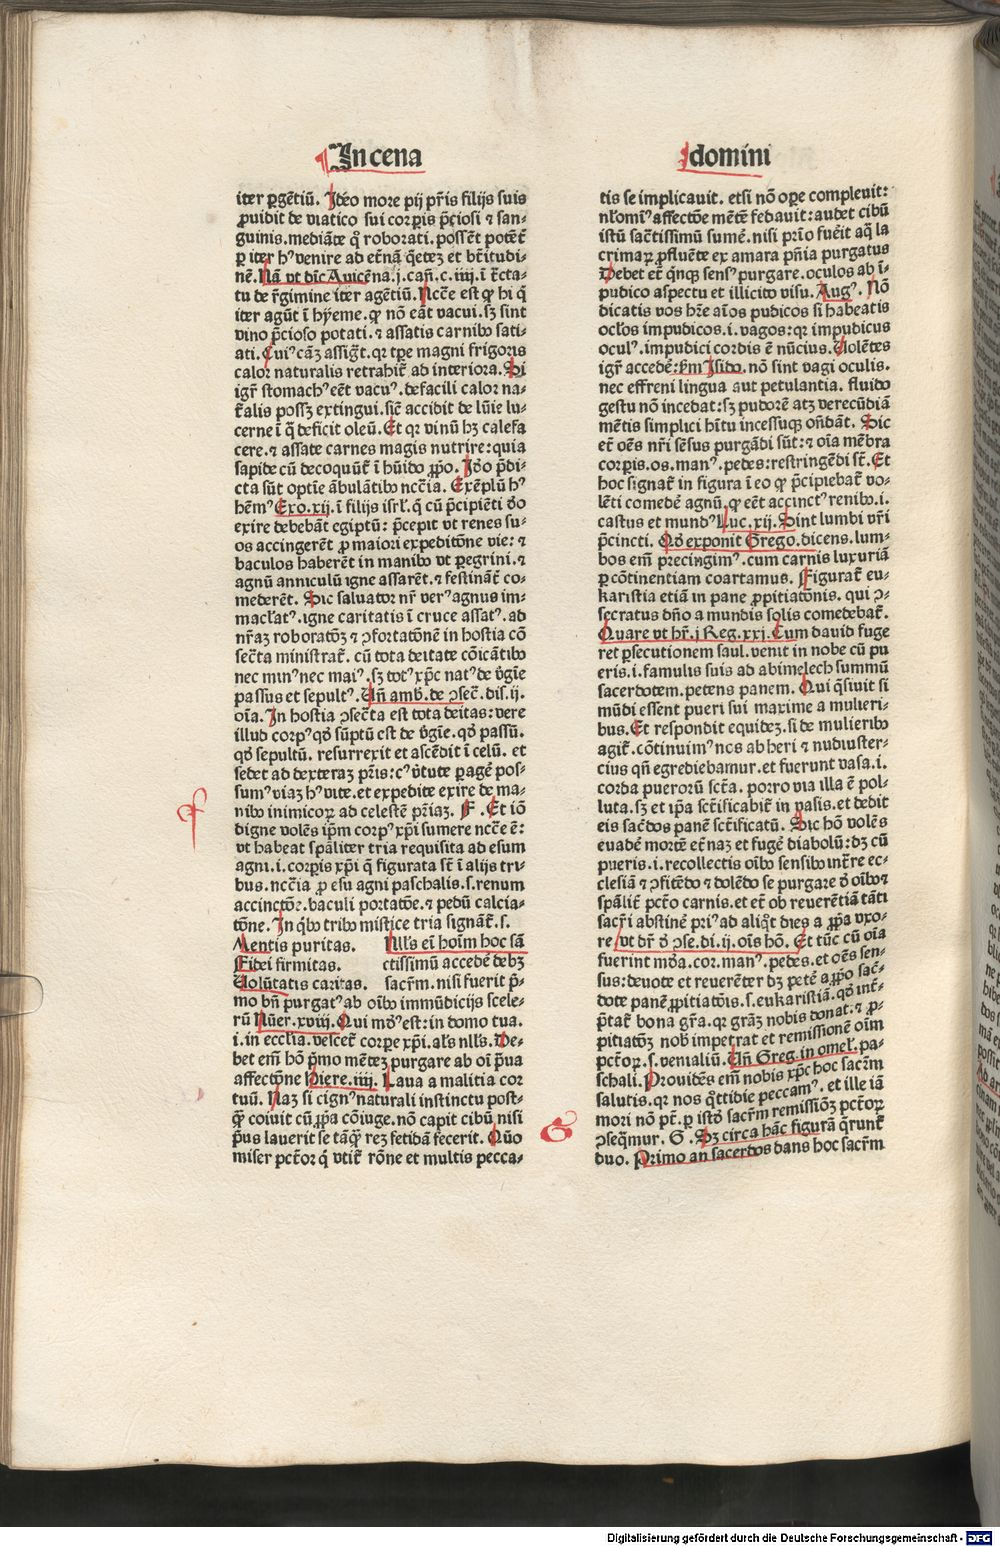 In cena
domini
iter ꝑgētiū. Idēo more pij pr̄is filijs suis
ꝓuidit de viatico sui corꝑis p̄ciosi ⁊ san-
guinis. mediāte qͦ roborati. possēt potēt̄
ꝑ iter hꝰ venire ad et̄nā q̄etez et bt̄itudi-
nē. Nā vt dic̄ Auicēna. j. cañ. c. iiij. i t̄cta-
tu de r̄gimine iter agētiū. Ncc̄e est ꝙ hi q̄
iter agūt ī hyeme. ꝙ nō eāt vacui. sꝫ sint
vino p̄cioso potati. ⁊ assatis carnibꝰ sati-
ati. Cuiꝰ cāꝫ assiḡt. qꝛ tꝑe magni frigoris
calor naturalis retrahit̄ ad interiora. Si
igr̄ stomachꝰ eēt vacuꝰ. defacili calor na-
t̄alis possꝫ extingui. sic̄ accidit de lūie lu-
cerne ī q̄ deficit oleū. Et qꝛ vinū hꝫ calefa
cere. ⁊ assate carnes magis nutrire: quia
sapide cū decoquūt̄ ī hūido ꝓpo. Idō p̄di-
cta sūt optīe ābulātibꝰ ncc̄ia. Exēplū hꝰ
hēmꝰ Exo. xij. ī filijs isrl̄. q̄ cū p̄cipiēti dō
exire debebāt egiptū: p̄cepit vt renes su-
os accingerēt ꝓ maiori expeditōne vie: ⁊
baculos haberēt in manibꝰ vt ꝑegrini. ⁊
agnū anniculū igne assarēt. ⁊ festināt̄ co-
mederēt. Sic saluator nr̄ verꝰ agnus im-
maclatꝰ. igne caritatis ī cruce assatꝰ. ad
nr̄aꝫ roboratōꝫ ⁊ ↄfortatōnē in hostia cō
sec̄ta ministrat̄. cū tota deitate cōicātibꝰ
nec minꝰ nec maiꝰ. sꝫ totꝰ xp̄c natꝰ de v̄gīe
passus et sepultꝰ. Uñ amb. de ↄsec̄. dis. ij.
oīa. In hostia ↄsec̄ta est tota deitas: vere
illud corpꝰ qd̄ sūptū est de v̄gīe. qd̄ passū.
qd̄ sepultū. resurrexit et ascēdit ī celū. et
sedet ad dexteraꝫ pr̄is: cꝰ v̄tute ꝑagē pos-
sumꝰ viaꝫ hꝰ vite. et expedite exire de ma-
nibꝰ inimicoꝝ ad celestē pr̄iaꝫ. F. Et iō
digne volēs ip̄m corpꝰ xp̄i sumere ncc̄e ē:
vt habeat sp̄āliter tria requisita ad esum
agni. i. corꝑis xp̄i q̄ figurata st̄ ī alijs tri-
bus. ncc̄ia ꝓ esu agni paschalis. s. renum
accinctōꝫ. baculi portatōe. ⁊ pedū calcia-
tōne. In qͥbꝰ tribꝰ mistice tria signāt̄. s.
Mentis puritas.
Fidei firmitas.
Uolūtatis caritas.
Null's eī hoīm hoc sā
ctissimū accedē debꝫ
sacr̄m. nisi fuerit p̄-
mo bn̄ purgatꝰ ab oībꝰ immūdicijs scele-
rū Nūer. xviij. Qui mōꝰ est: in domo tua.
i. in ecclīa. vescet̄ corꝑe xp̄i. al's nll's. De-
bet em̄ hō p̄mo mēteꝫ purgare ab oī p̄ua
affectōne Hiere. iiij. Laua a malitia cor
tuū. Naꝫ si cignꝰ naturali instinctu post-
ꝙ̄ coiuit cū ꝓpa cōiuge. nō capit cibū nisi
p̄us lauerit se tāꝙ̄ reꝫ fetidā fecerit. Quō
miser pctōr q̄ vtit̄ rōne et multis pecca-
F
tis se implicauit. etsi nō oꝑe compleuit:
nl̄omīꝰ affectōe mētē fedauit: audet cibū
istū sac̄tissimū sumē. nisi prīo fuēit aq̄ la
crimaꝝ ꝓfluēte ex amara pn̄ia purgatus
Debet et̄ qͥnqꝫ sensꝰ purgare. oculos ab ī-
pudico aspectu et illicito visu. Augꝰ. Nō
dicatis vos hr̄e aīos pudicos si habeatis
oclos impudicos. i. vagos: qꝛ impudicus
oculꝰ. impudici cordis ē nūcius. Uolētes
igr̄ accedē: ẜm Isido. nō sint vagi oculis.
nec effreni lingua aut petulantia. fluido
gestu nō incedat: sꝫ pudorē atꝫ verecūdiā
mētis simplici hītu incessuqꝫ oñdāt. Sic
et̄ oēs nr̄i sēsus purgādi sūt: ⁊ oīa mēbra
corꝑis. os. manꝰ. pedes: restringēdi st̄. Et
hoc signat̄ in figura ī eo ꝙ p̄cipiebat̄ vo-
lēti comedē agnū. ꝙ eēt accinctꝰ renibꝰ. i.
castus et mundꝰ Luc. xij. Sint lumbi vr̄i
p̄cincti. Qd̄ exponit Grego. dicens. lum-
bos em̄ precingimꝰ. cum carnis luxuriā
ꝑ cōtinentiam coartamus. Figurat̄ eu-
karistia etiā in pane ꝓpitiatōnis. qui ↄ-
secratus dn̄o a mundis solis comedebat̄.
Quare vt hr̄. j Reg. xxj. Cum dauid fuge
ret ꝑsecutionem saul. venit in nobe cū pu
eris. i. famulis suis ad abimelech summū
sacerdotem. petens panem. Qui q̄siuit si
mūdi essent pueri sui maxime a mulieri-
bus. Et respondit equideꝫ. si de mulieribꝰ
agit̄. cōtinuimꝰ nos ab heri ⁊ nudiuster-
cius qn̄ egrediebamur. et fuerunt vasa. i.
corda puerorū sct̄a. porro via illa ē pol-
luta. sꝫ et ip̄a sct̄ificabit̄ in vasis. et dedit
eis sac̄dos panē sct̄ificatū. Sic hō volēs
euadē mortē et̄naꝫ et fugē diabolū: dꝫ cū
pueris. i. recollectis oībꝰ sensibꝰ int̄re ec-
clesiā ⁊ ↄfitēdo ⁊ dolēdo se purgare d̄ oībꝰ ⁊
sp̄ālit̄ pctō carnis. et et̄ ob reuerētiā tāti
sacr̄i abstinē priꝰ ad aliqͦt dies a ꝓpa vxo-
re / vt dr̄ d̄ ↄse. di. ij. oīs hō. Et tūc cū oīa
fuerint mūda. cor. manꝰ. pedes. et oēs sen-
sus: deuote et reuerēter dꝫ petē a ꝓpo sac̄-
dote panē ꝓpitiatōis. s. eukaristiā. qd̄ int̄-
p̄tat̄ bona gr̄a. qꝛ grāꝫ nobis donat: ⁊ ꝓ-
pitiatōꝫ nob̄ impetrat et remissionē oīm
pctōꝝ. s. venialiū. Uñ Greg. in omel. pa-
schali. Prouidēs em̄ nobis xp̄c hoc sacr̄m
salutis. qꝛ nos qͦttidie peccamꝰ. et ille iā
mori nō pt̄. ꝑ istd̄ sacr̄m remissiōꝫ pctōꝝ
ↄseq̄mur. G. Sꝫ circa hāc figurā q̄runt̄
duo. Primo an sacerdos dans hoc sacr̄m
G
Digitalisierung gefördert durch die Deutsche Forschungsgemeinschaft - DFG